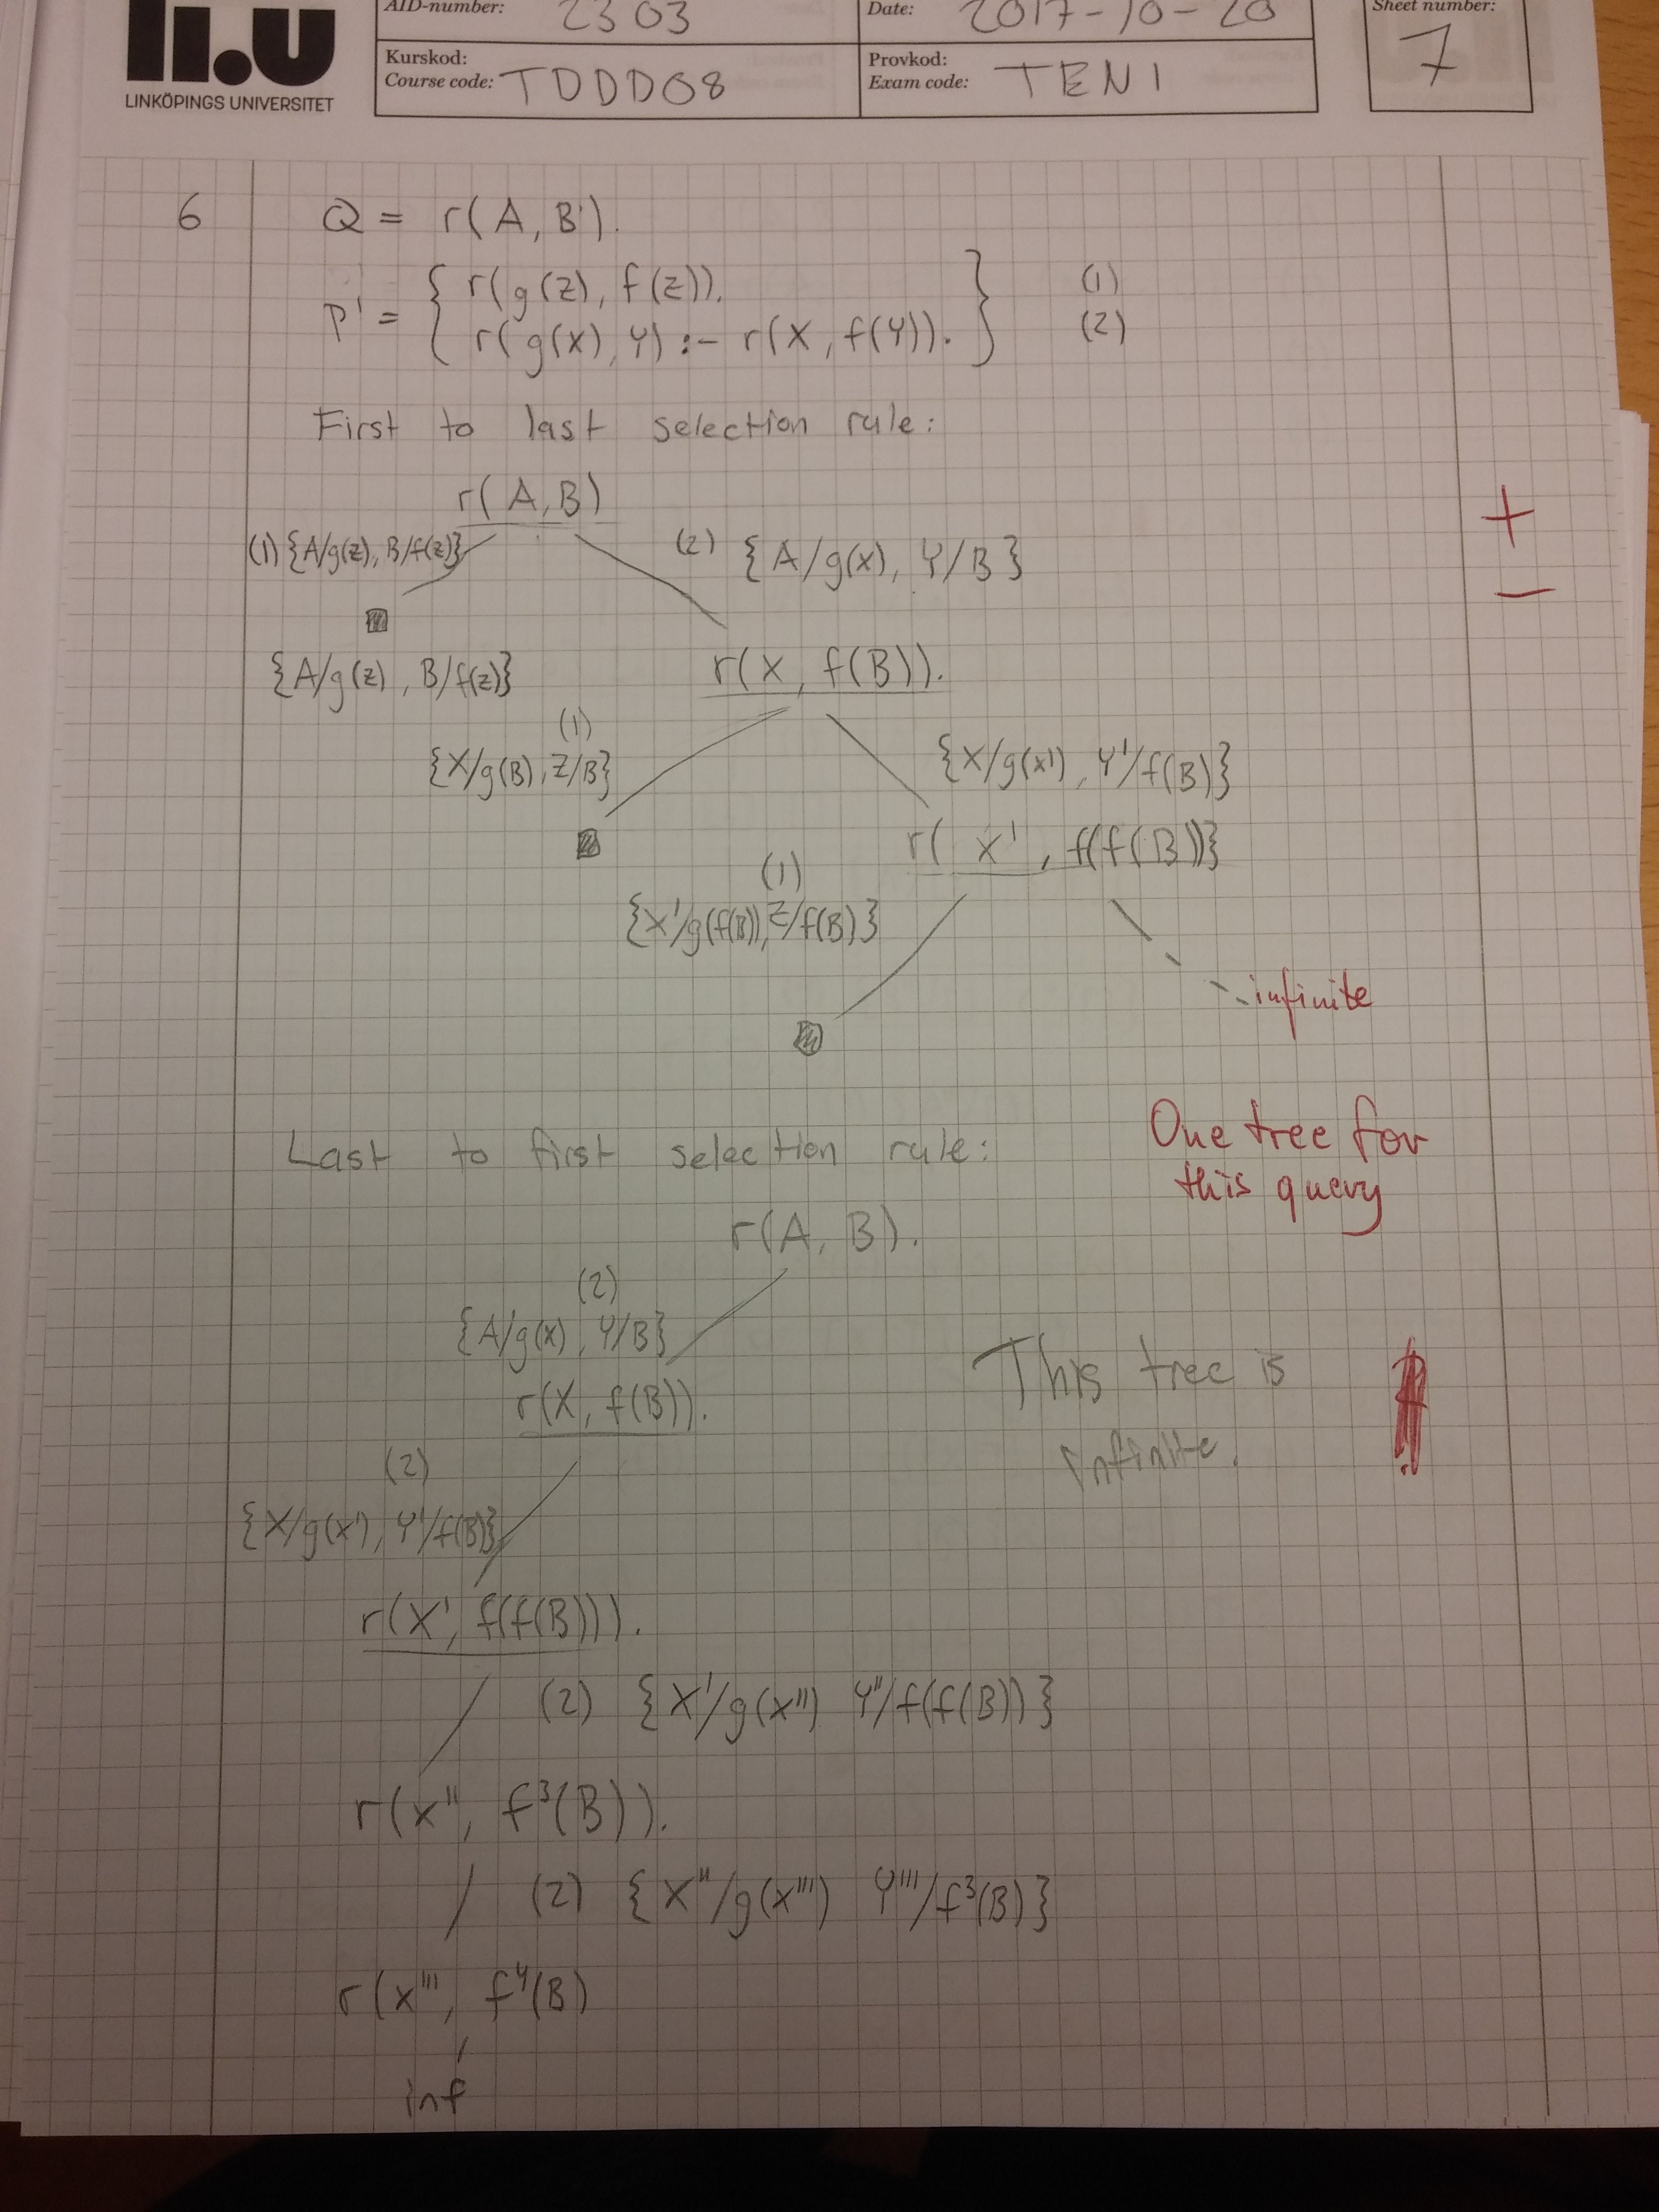 AID-number: 2303
Date: 2017-10-20
Sheet number:
7
li.u
LINKÖPINGS UNIVERSITET
Kurskod:
Course code: TDDD08
Provkod:
Exam code: TEN1
6 Q = r(A, B).
P' = { r(g(z), f(z)). } (1)
r(g(x), Y) :- r(X, f(Y)). (2)
First to last selection rule:
r(A,B)
(1) {A/g(z), B/f(z)} (2) {A/g(x), Y/B}
+
-
{A/g(z), B/f(z)} r(x, f(B)).
(1)
{X/g(B), Z/B} {X/g(x'), Y'/f(B)}
r(x', f(f(B))}
(1)
{X'/g(f(B)), Z/f(B)}
infinite
Last to first selection rule:
One tree for
this query
r(A, B).
(2)
{A/g(x), Y/B}
r(X, f(B)).
This tree is
infinite.
(2)
{X/g(x'), Y'/f(B)}
r(X', f(f(B))).
(2) {X'/g(x'') Y''/f(f(B))}
r(x'', f³(B)).
(2) {X''/g(x''') Y'''/f³(B)}
r(x''', f⁴(B)
inf